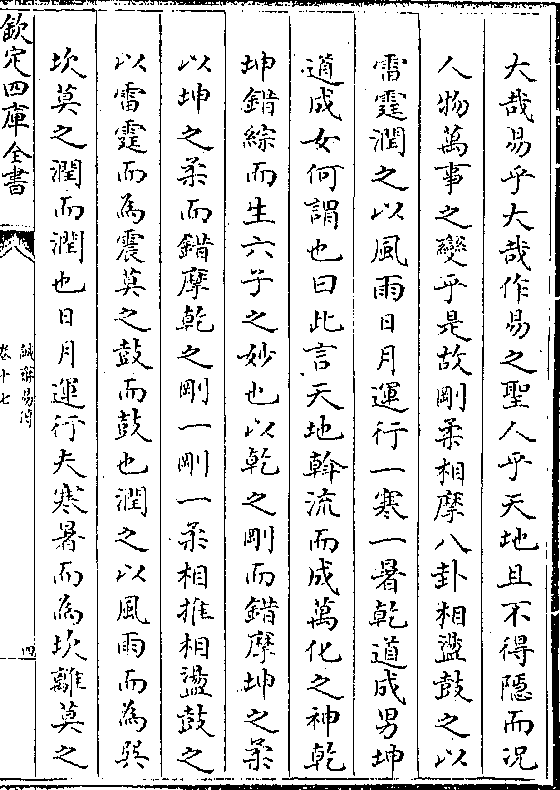 大哉易乎大哉作易之聖人乎天地且不得隱而況
人物萬事之變乎是故剛柔相摩八卦相盪鼓之以
雷霆潤之以風雨日月運行一寒一暑乾道成男坤
道成女何謂也曰此言天地斡流而成萬化之神乾
坤錯綜而生六子之妙也以乾之剛而錯摩坤之柔
以坤之柔而錯摩乾之剛一剛一柔相推相盪鼓之
以雷霆而為震莫之鼓而鼓也潤之以風雨而為巽
坎莫之潤而潤也日月運行夫寒暑而為坎離莫之
欽定四庫全書
誠齋易傳
卷十七
四